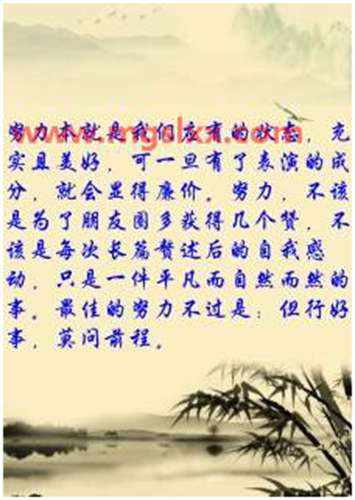 www.mgslxx.com
努力本就是我们应有的状态，充
实且美好，可一旦有了表演的成
分，就会显得廉价。努力，不该
是为了朋友圈多获得几个赞，不
该是每次长篇赘述后的自我感
动，只是一件平凡而自然而然的
事。最佳的努力不过是：但行好
事，莫问前程。